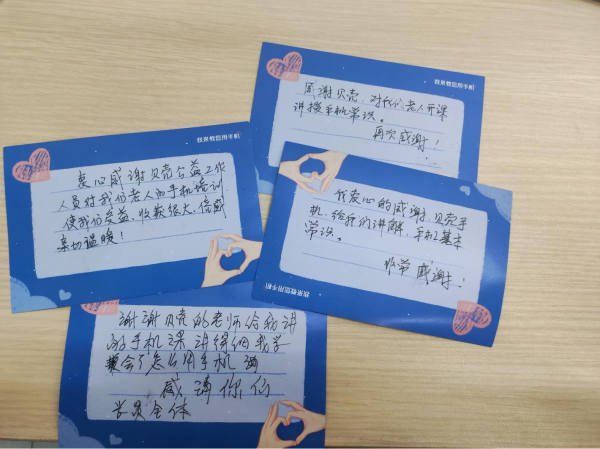 我来教您用手机
感谢贝壳,对我们老人开课
讲授手机常识。
再次感谢!
我来教您用手机
衷心感谢贝壳公益工作
人员对我们老人的手机培训
使我们受益、收获很大、倍感
亲切温暖!
衷心的感谢贝壳手
机,给我们讲解,手机基本
常识。
非常感谢!
我来教您用手机
谢谢贝壳的老师给我讲
的手机课讲得细我学
会了怎么用手机
感谢你们
学员全体